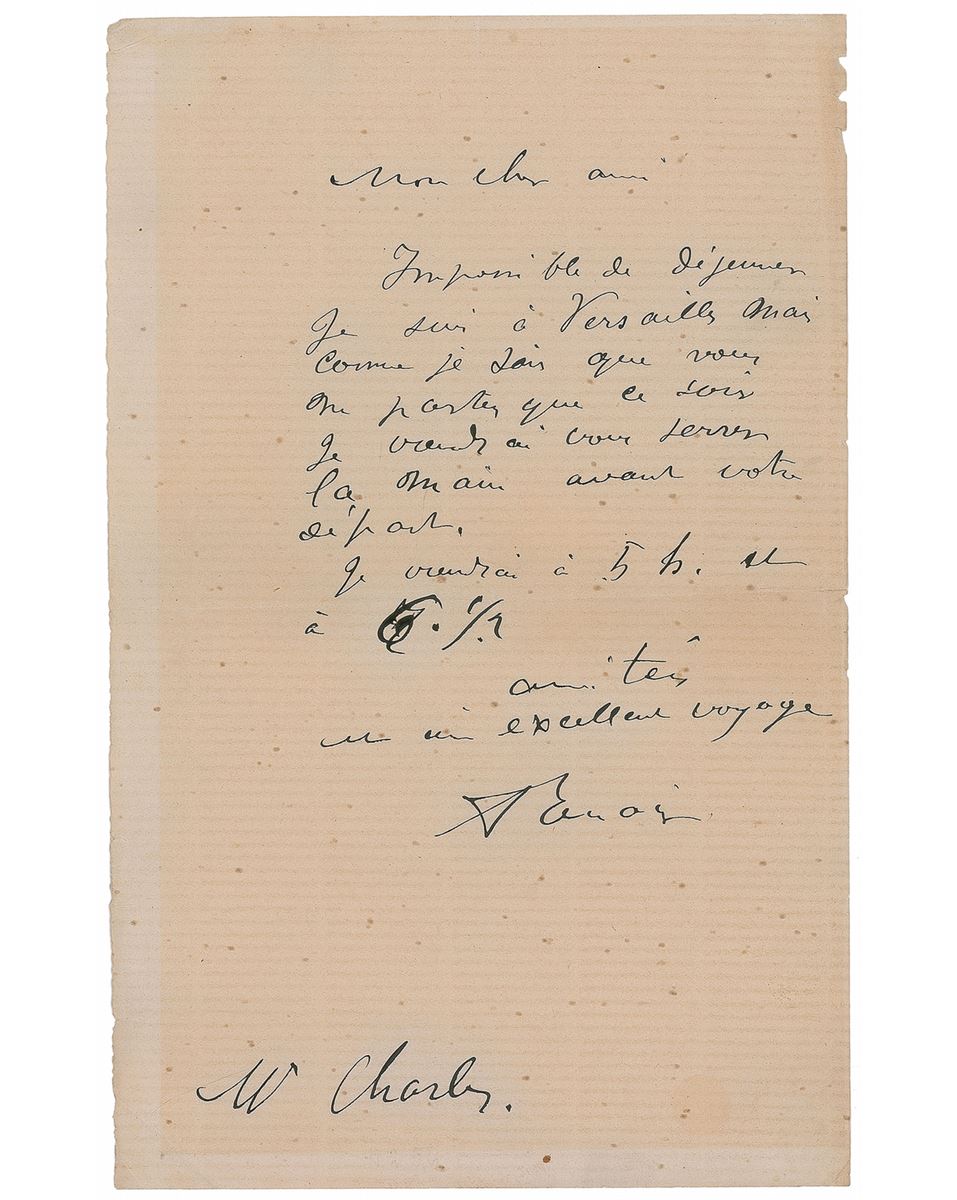 Mon cher ami
Impossible de déjeuner
Je suis à Versailles mais
comme je sais que vous
ne partez que ce soir
Je viendrai vous serrer
la main avant votre
départ.
Je viendrai à 5 h. et
à 6. 1/2
amitiés
et un excellent voyage
Renoir
Mr Charles.